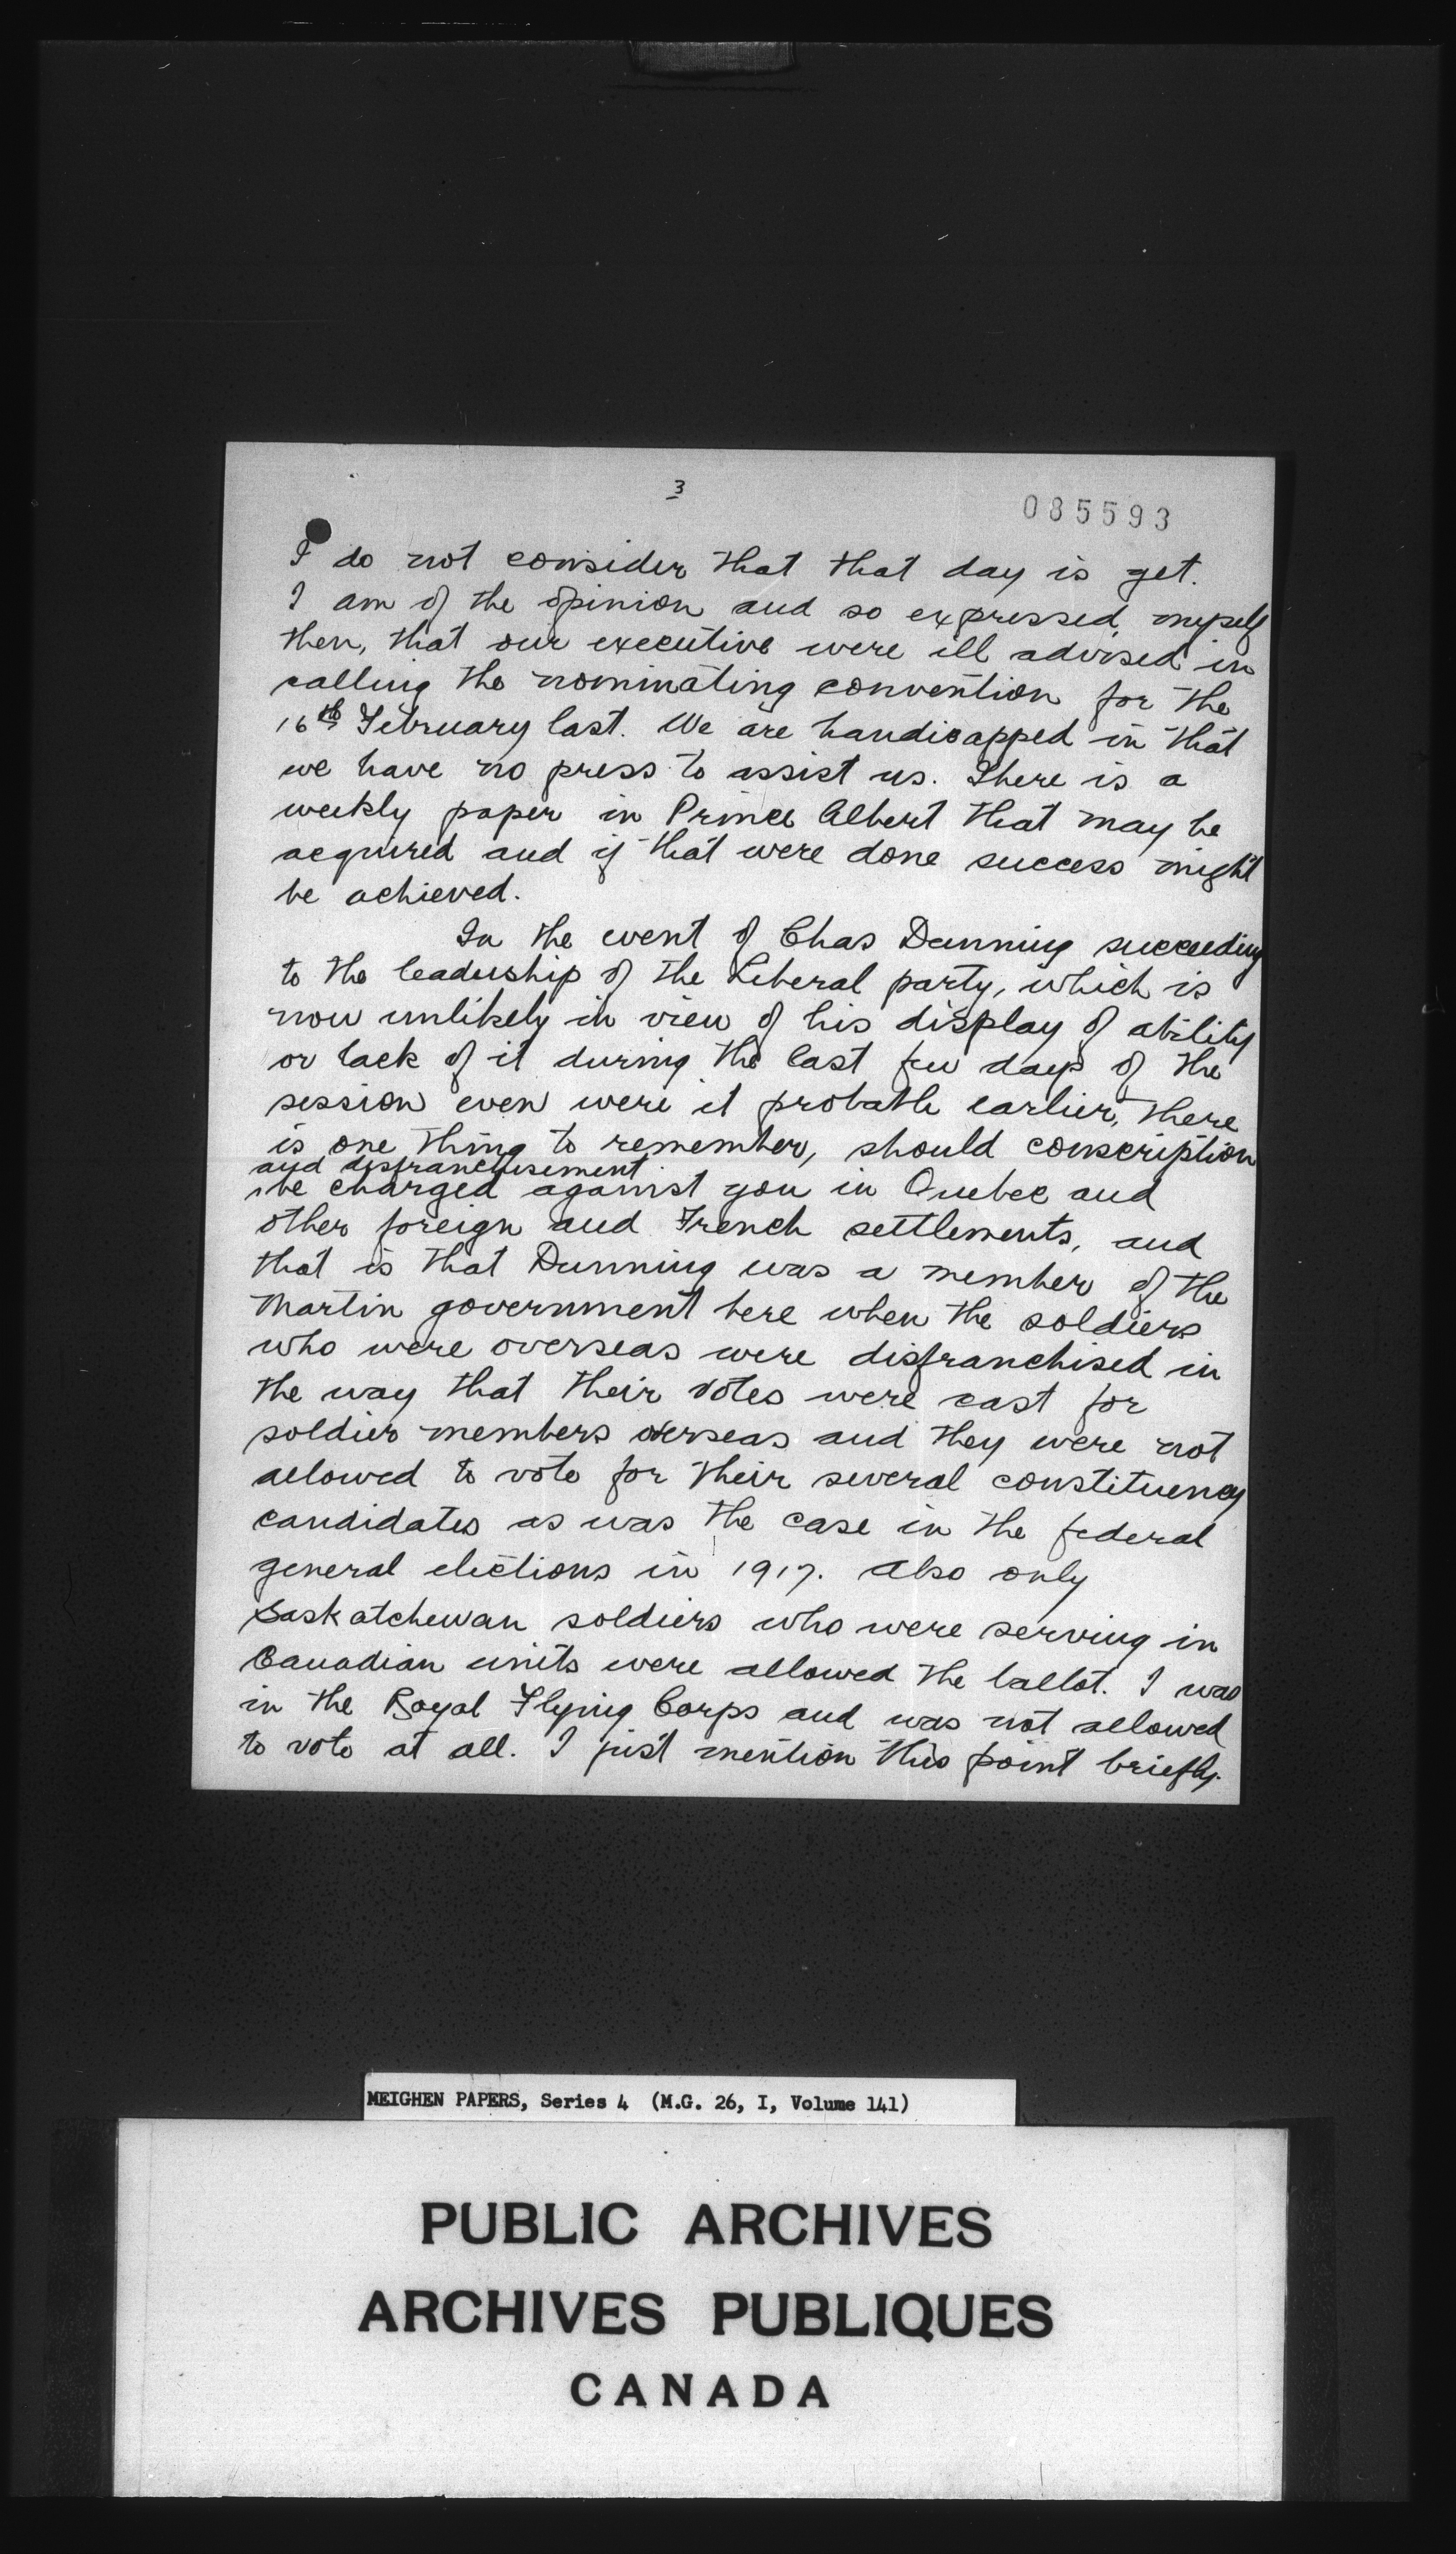 3
085593
I do not consider that that day is yet.
I am of the opinion and so expressed myself
then, that our executive were ill advised in
calling the nominating convention for the
16th February last. We are handicapped in that
we have no press to assist us. There is a
weekly paper in Prince Albert that may be
acquired and if that were done success might
be achieved.
In the event of Chas Dunning succeeding
to the leadership of the Liberal party, which is
now unlikely in view of his display of ability
or lack of it during the last few days of the
session even were it probable earlier, there
is one thing to remember, should conscription
and disfranchisement
be charged against you in Quebec and
other foreign and French settlements, and
that is that Dunning was a member of the
Martin government here when the soldiers
who were overseas were disfranchised in
the way that their votes were cast for
soldier members overseas and they were not
allowed to vote for their several constituency
candidates as was the case in the federal
general elections in 1917. Also only
Saskatchewan soldiers who were serving in
Canadian units were allowed the ballot. I was
in the Royal Flying Corps and was not allowed
to vote at all. I just mention this point briefly.
MEIGHEN PAPERS, Series 4 (M.G. 26, I, Volume 141)
PUBLIC ARCHIVES
ARCHIVES PUBLIQUES
CANADA